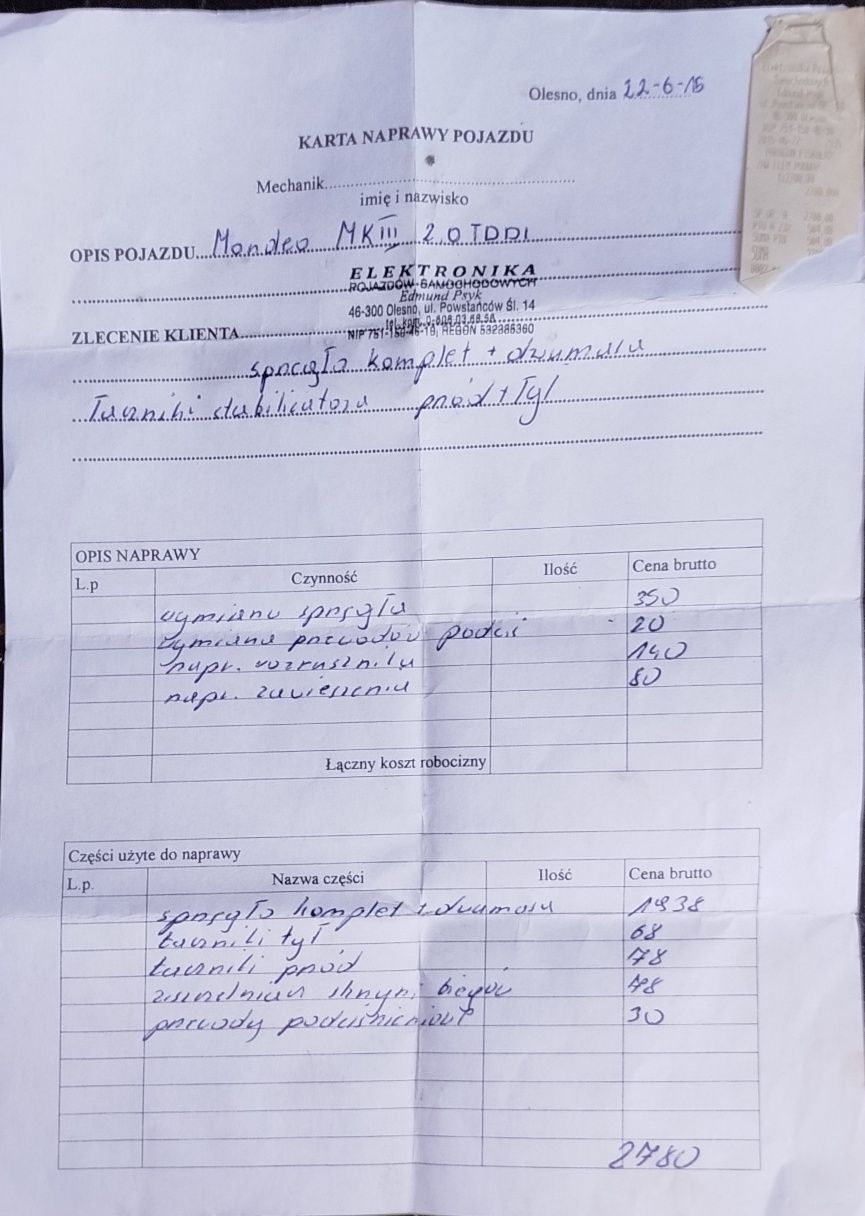 Olesno, dnia 22-6-15
KARTA NAPRAWY POJAZDU
Mechanik
imię i nazwisko
OPIS POJAZDU Mondeo MKIII 2.0 TDDI
ELEKTRONIKA
POJAZDÓW SAMOCHODOWYCH
Edmund Psyk
46-300 Olesno, ul. Powstańców Śl. 14
REGON 532386360
ZLECENIE KLIENTA
sprzęgło komplet + dwumasa
Łączniki stabilizatora przód + Tył
OPIS NAPRAWY
L.p Czynność Ilość Cena brutto
wymiana sprzęgła 350
wymiana przewodów podciś 20
napr. rozrusznika 140
napr. zawieszenia 80
Łączny koszt robocizny
Części użyte do naprawy
L.p. Nazwa części Ilość Cena brutto
sprzęgło komplet + dwumasa 1938
łączniki tył 68
łączniki przód 78
skrzyni biegów 78
przewody podciśnieniowe 30
2780